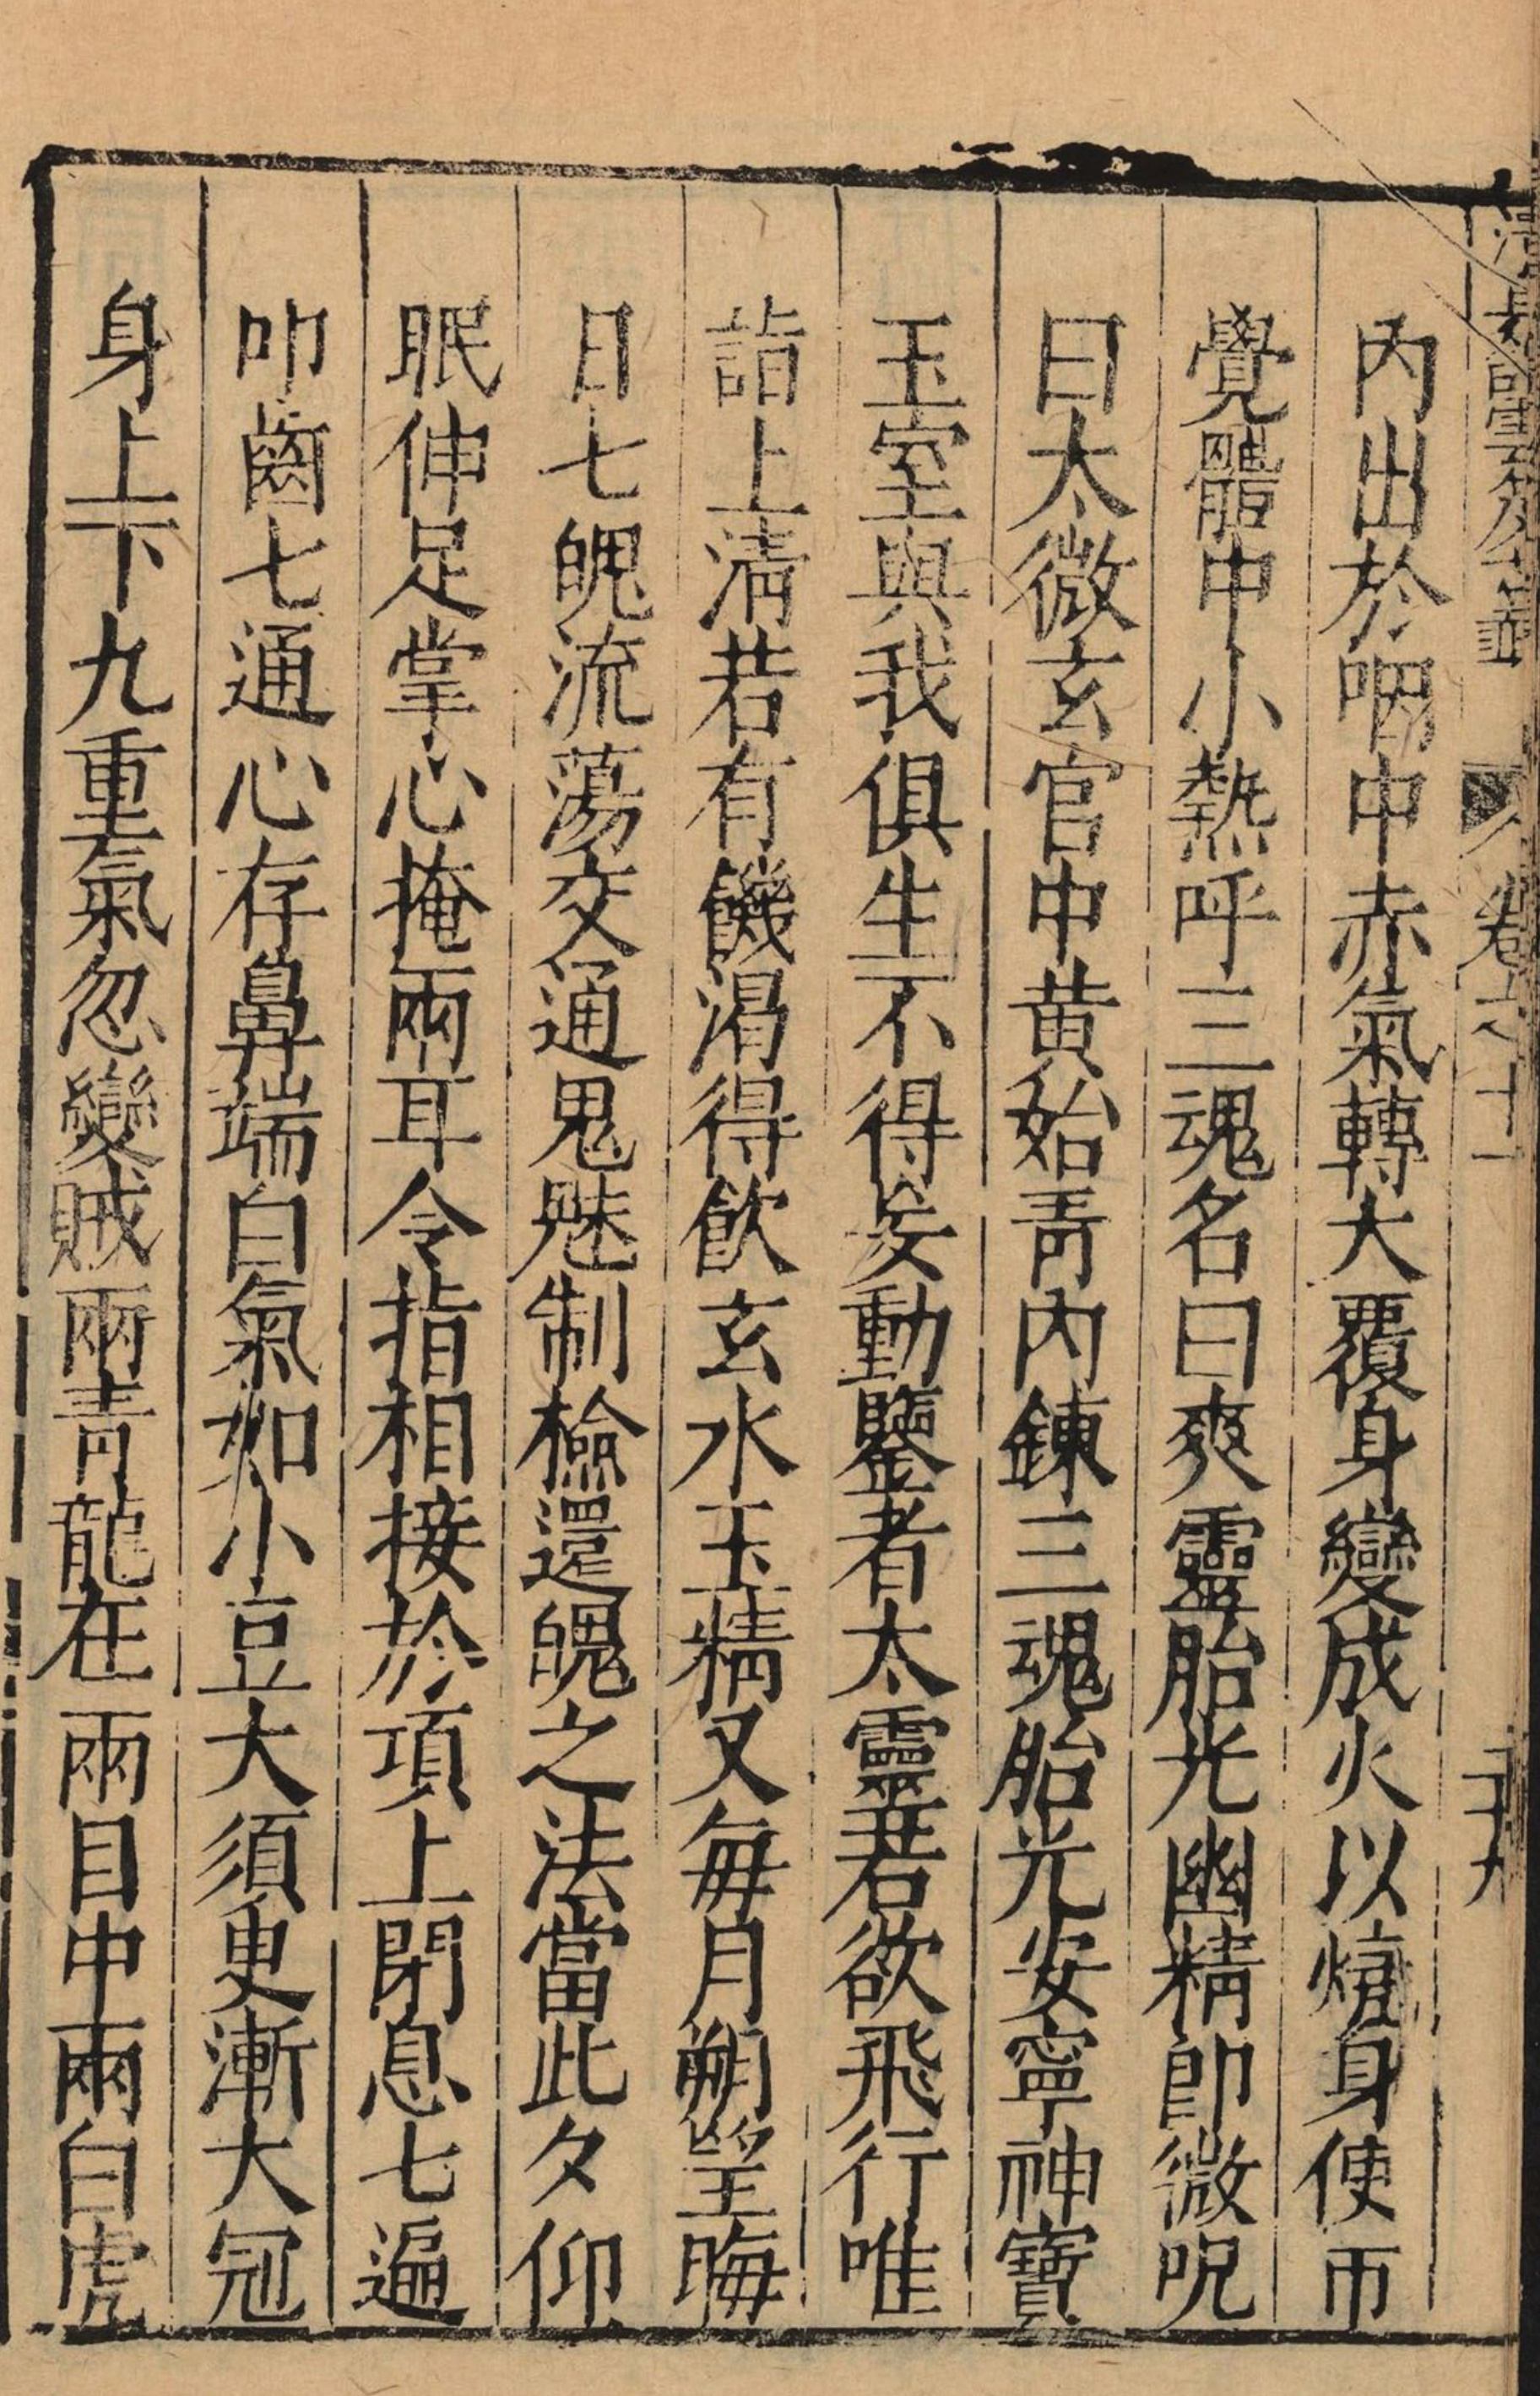 內出於咽中赤氣轉大覆身變成火以燒身使帀
覺體中小熱呼三魂名曰爽靈胎光幽精卽微呪
曰太微玄宫中黄始青內鍊三魂胎光安寧神寶
玉室與我俱生不得妄動鑒者太靈若欲飛行唯
詣上清若有饑渴得飲玄水玉精又每月朔望晦
日七魄流蕩交通鬼魅制檢還魄之法當此夕仰
眠伸足掌心掩兩耳令指相接於項上閉息七遍
叩齒七通心存鼻端白氣如小豆大須臾漸大冠
身上下九重氣忽變賊兩青龍在兩目中兩白虎
卷之十一